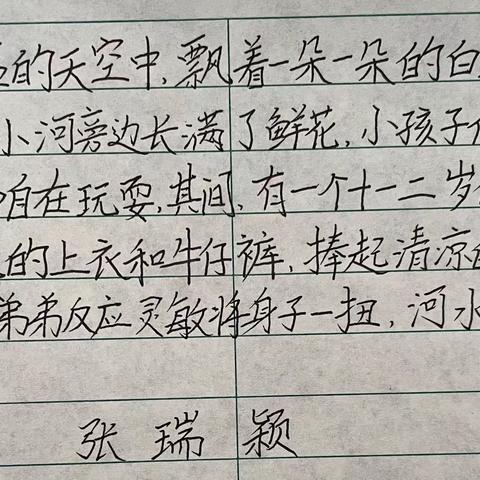 的天空中,飘着一朵一朵的白
小河旁边长满了鲜花,小孩子
自在玩耍,其间,有一个十一二岁
的上衣和牛仔裤,捧起清凉
弟弟反应灵敏将身子一扭,河水
张瑞颖